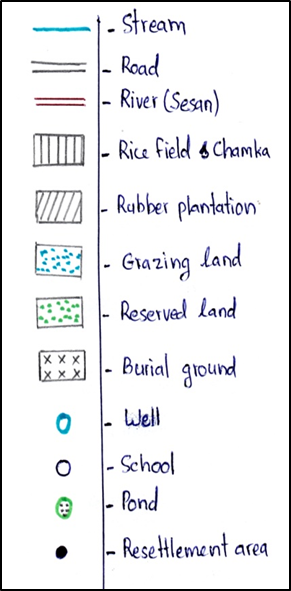 - Stream
- Road
- River (Sesan)
- Rice field & Chamka
- Rubber plantation
- Grazing land
- Reserved land
- Burial ground
- Well
- School
- Pond
- Resettlement area